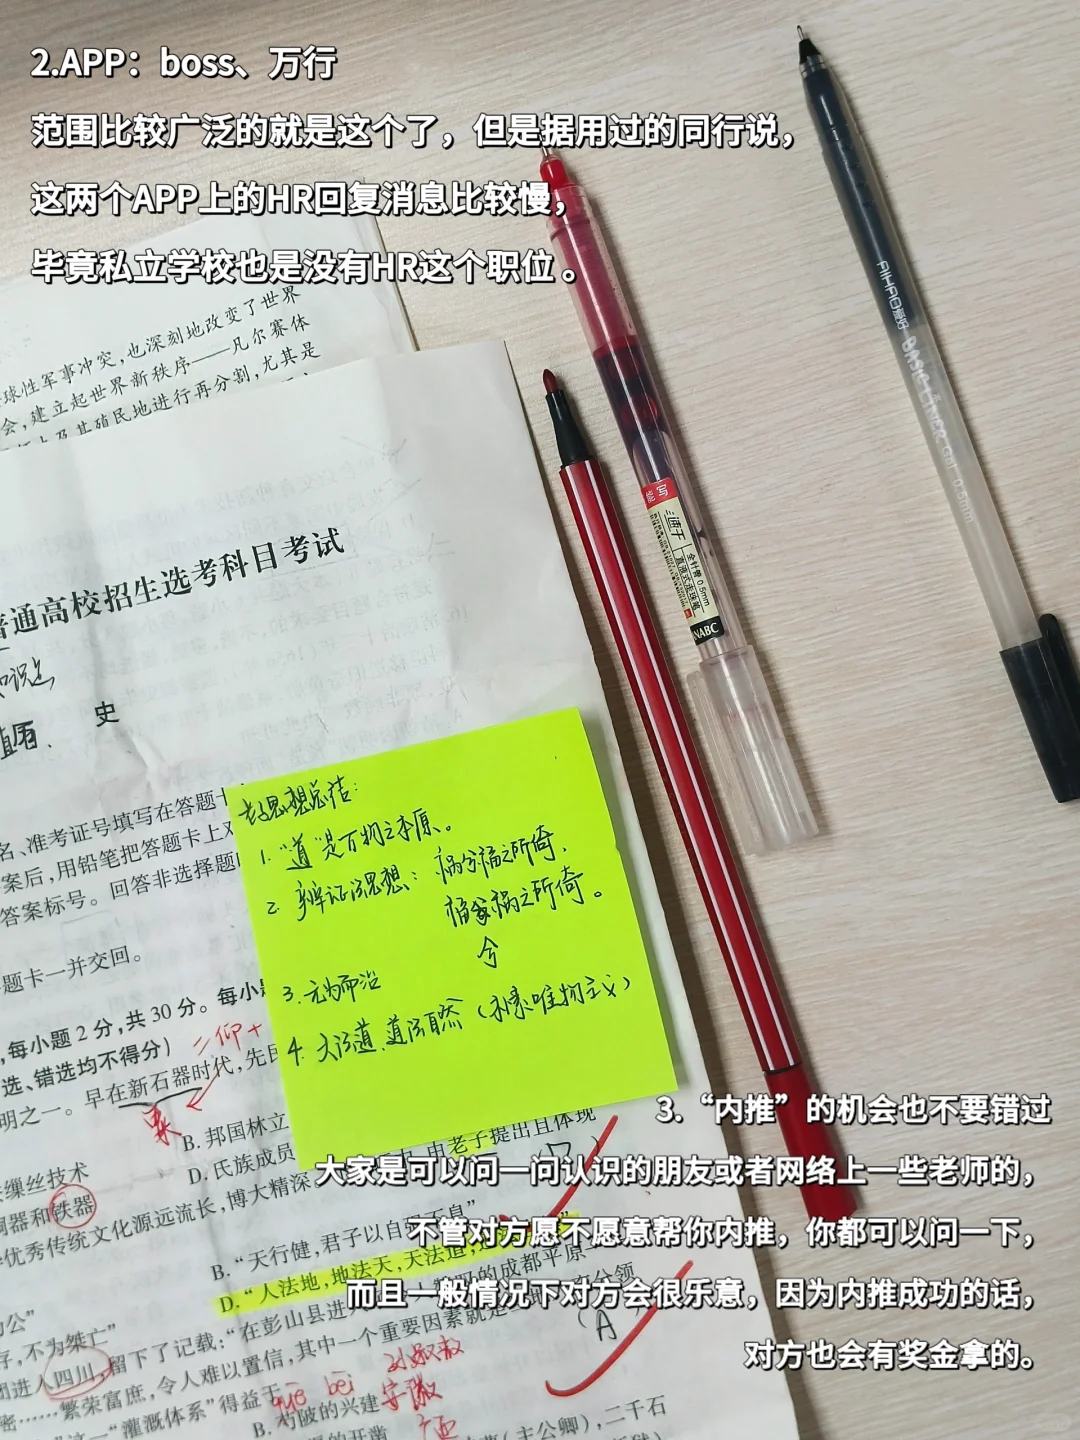 2.APP：boss、万行
范围比较广泛的就是这个了，但是据用过的同行说，
这两个APP上的HR回复消息比较慢，
毕竟私立学校也是没有HR这个职位。
球性军事冲突，也深刻地改变了世界
会，建立起世界新秩序——凡尔赛体
及其殖民地进行再分割，尤其是
普通高校招生选考科目考试
史
名、准考证号填写在答题卡
案后，用铅笔把答题卡上对
答案标号。回答非选择题
题卡一并交回。
老子思想总结：
1. “道”是万物之本原。
2. 辨证法思想：祸兮福之所倚，
福兮祸之所倚。
兮
3. 无为而治
4. 天法道，道法自然（朴素唯物主义）
，每小题2分，共30分。每小
选、错选均不得分）
明之一。早在新石器时代，先民
B. 邦国林立
D. 氏族成员
缫丝技术
铜器和铁器
优秀传统文化源远流长，博大精深
由老子提出且体现
B.“天行健，君子以自强不息”
D.“人法地，地法天，天法道，道
公”
存，不为桀亡”
团进入四川，留下了记载：“在彭山县进
的成都平原
密……繁荣富庶，令人难以置信，其中一个重要因素就是
分领
“这一“灌溉体系”得益于
A
yuè bēi
孙叔敖
安徽
B. 芍陂的兴建
的开凿
（主公卿），二千石
3.“内推”的机会也不要错过
大家是可以问一问认识的朋友或者网络上一些老师的，
不管对方愿不愿意帮你内推，你都可以问一下，
而且一般情况下对方会很乐意，因为内推成功的话，
对方也会有奖金拿的。
AIHAO爱好
Gel 0.5mm
速干
全针管 0.5mm
直液式走珠笔
SNABC